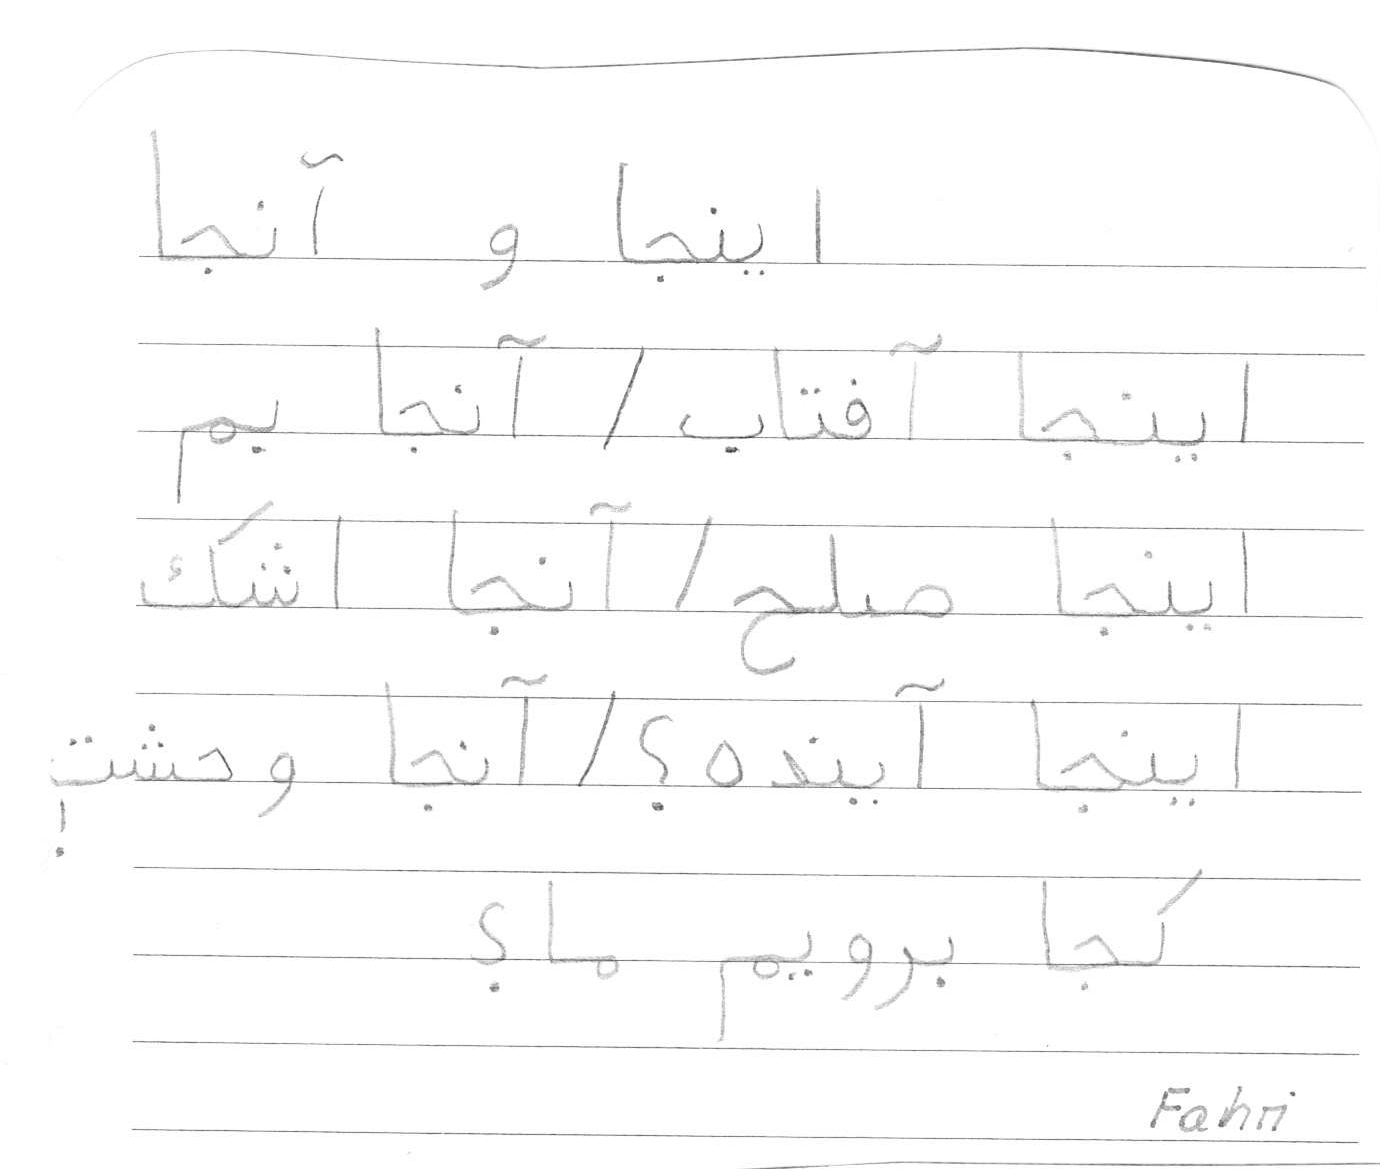 اینجا و آنجا
اینجا آفتاب / آنجا بم
اینجا صلح / آنجا اشک
اینجا آینده؟ / آنجا وحشت!
کجا برویم ما؟
Fahri